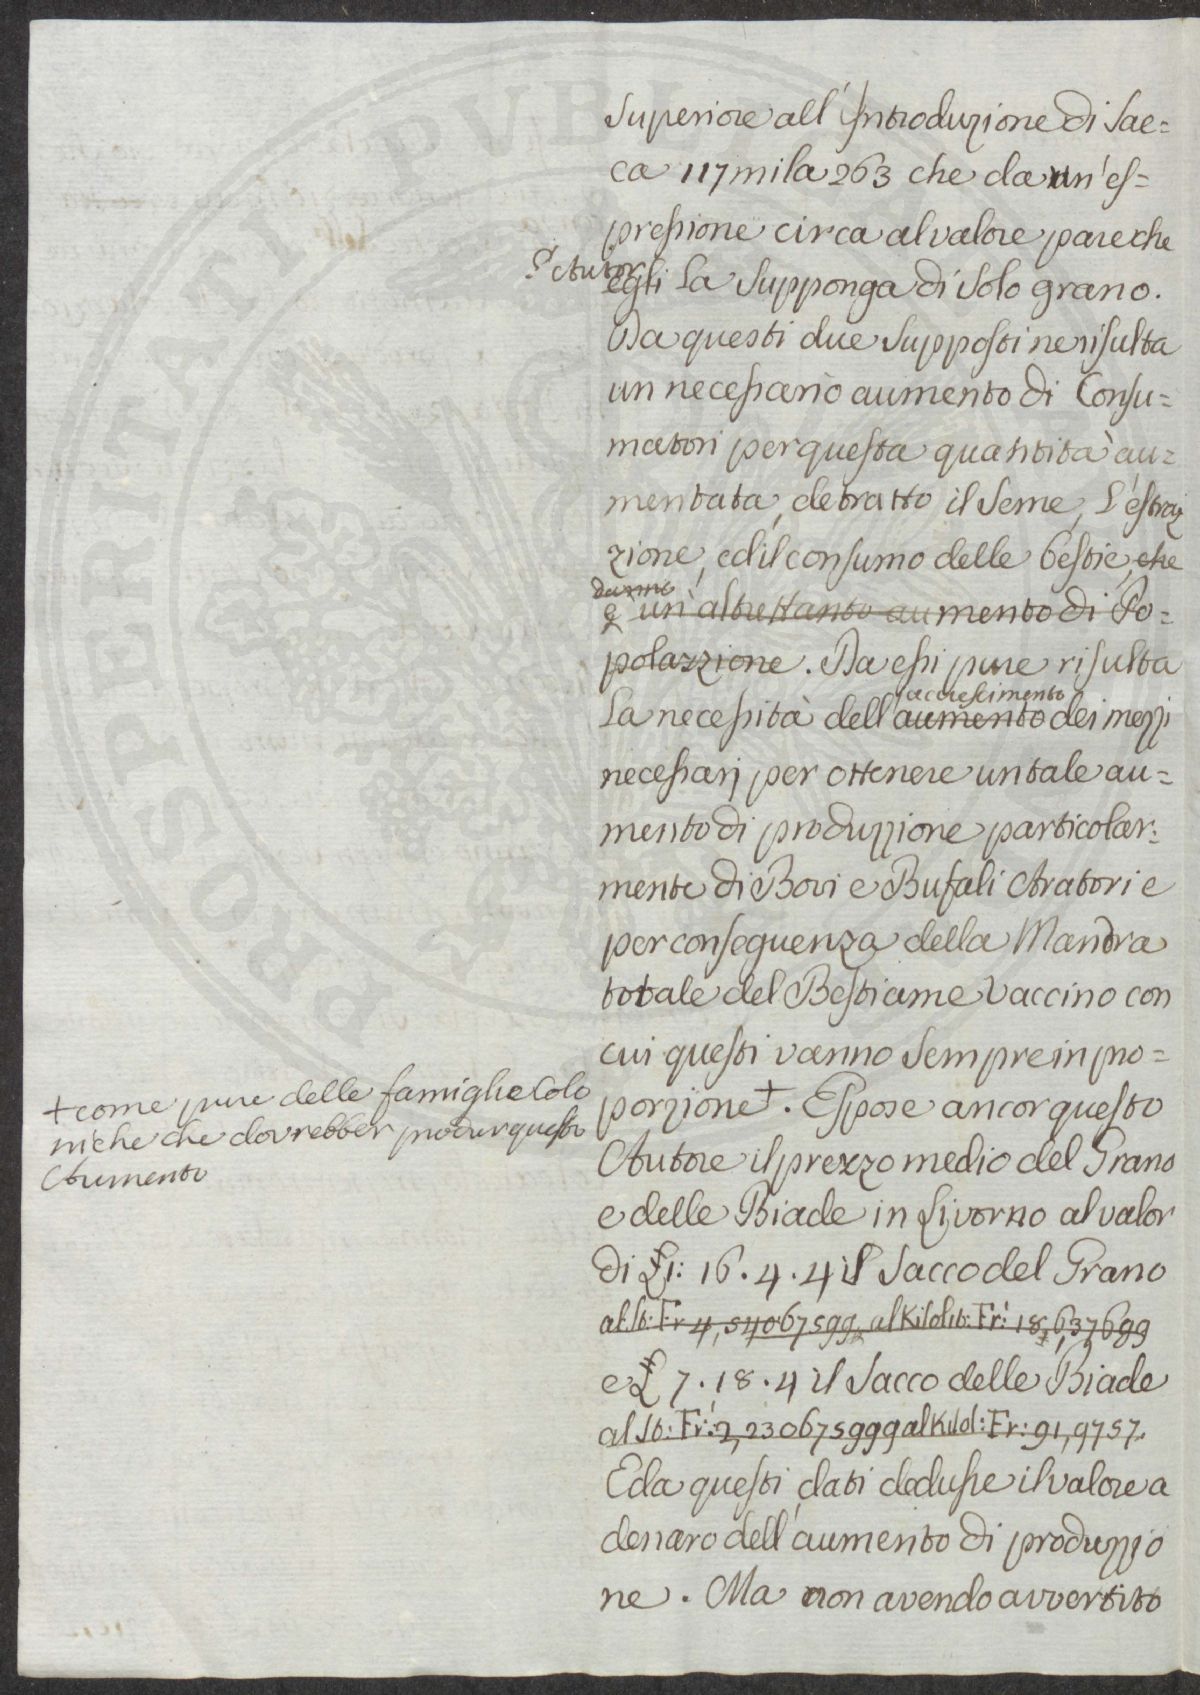 superiore all'Introduzione di Sac=
ca 117mila263 che da un'es=
pressione circa al valore pare che
l'Autor
egli la supponga di solo grano.
Da questi due supposti ne risulta
un necessario aumento di Consu=
matori per questa quantità au=
mentata, detratto il seme, l'estra
zione, ed il consumo delle bestie, che
danno
è un'altrettanto aumento di Po=
polazzione. Da essi pure risulta
accrescimento
la necessità dell'aumento dei mezzi
necessarj per ottenere un tale au=
mento di produzzione particolar=
mente di Bovi e Bufali Aratori e
per conseguenza della Mandra
totale del Bestiame Vaccino con
cui questi vanno sempre in pro=
porzione+. Espose ancor questo
+come pure delle famiglie Colo
niche che dovrebber produr questo
Aumento
Autore il prezzo medio del Grano
e delle Biade in Livorno al valor
di £i: 16.4.4 il Sacco del Grano
al St: Fr 4,54067599, al Kilolit: Fr: 18,637699
e £ 7.18.4 il Sacco delle Biade
al St: Fr: 2,230675999 al Kilol: Fr: 91,9757.
E da questi dati dedusse il valore a
denaro dell'aumento di produzzio
ne. Ma non avendo avvertito
PROSPERITATI PUBLICAE